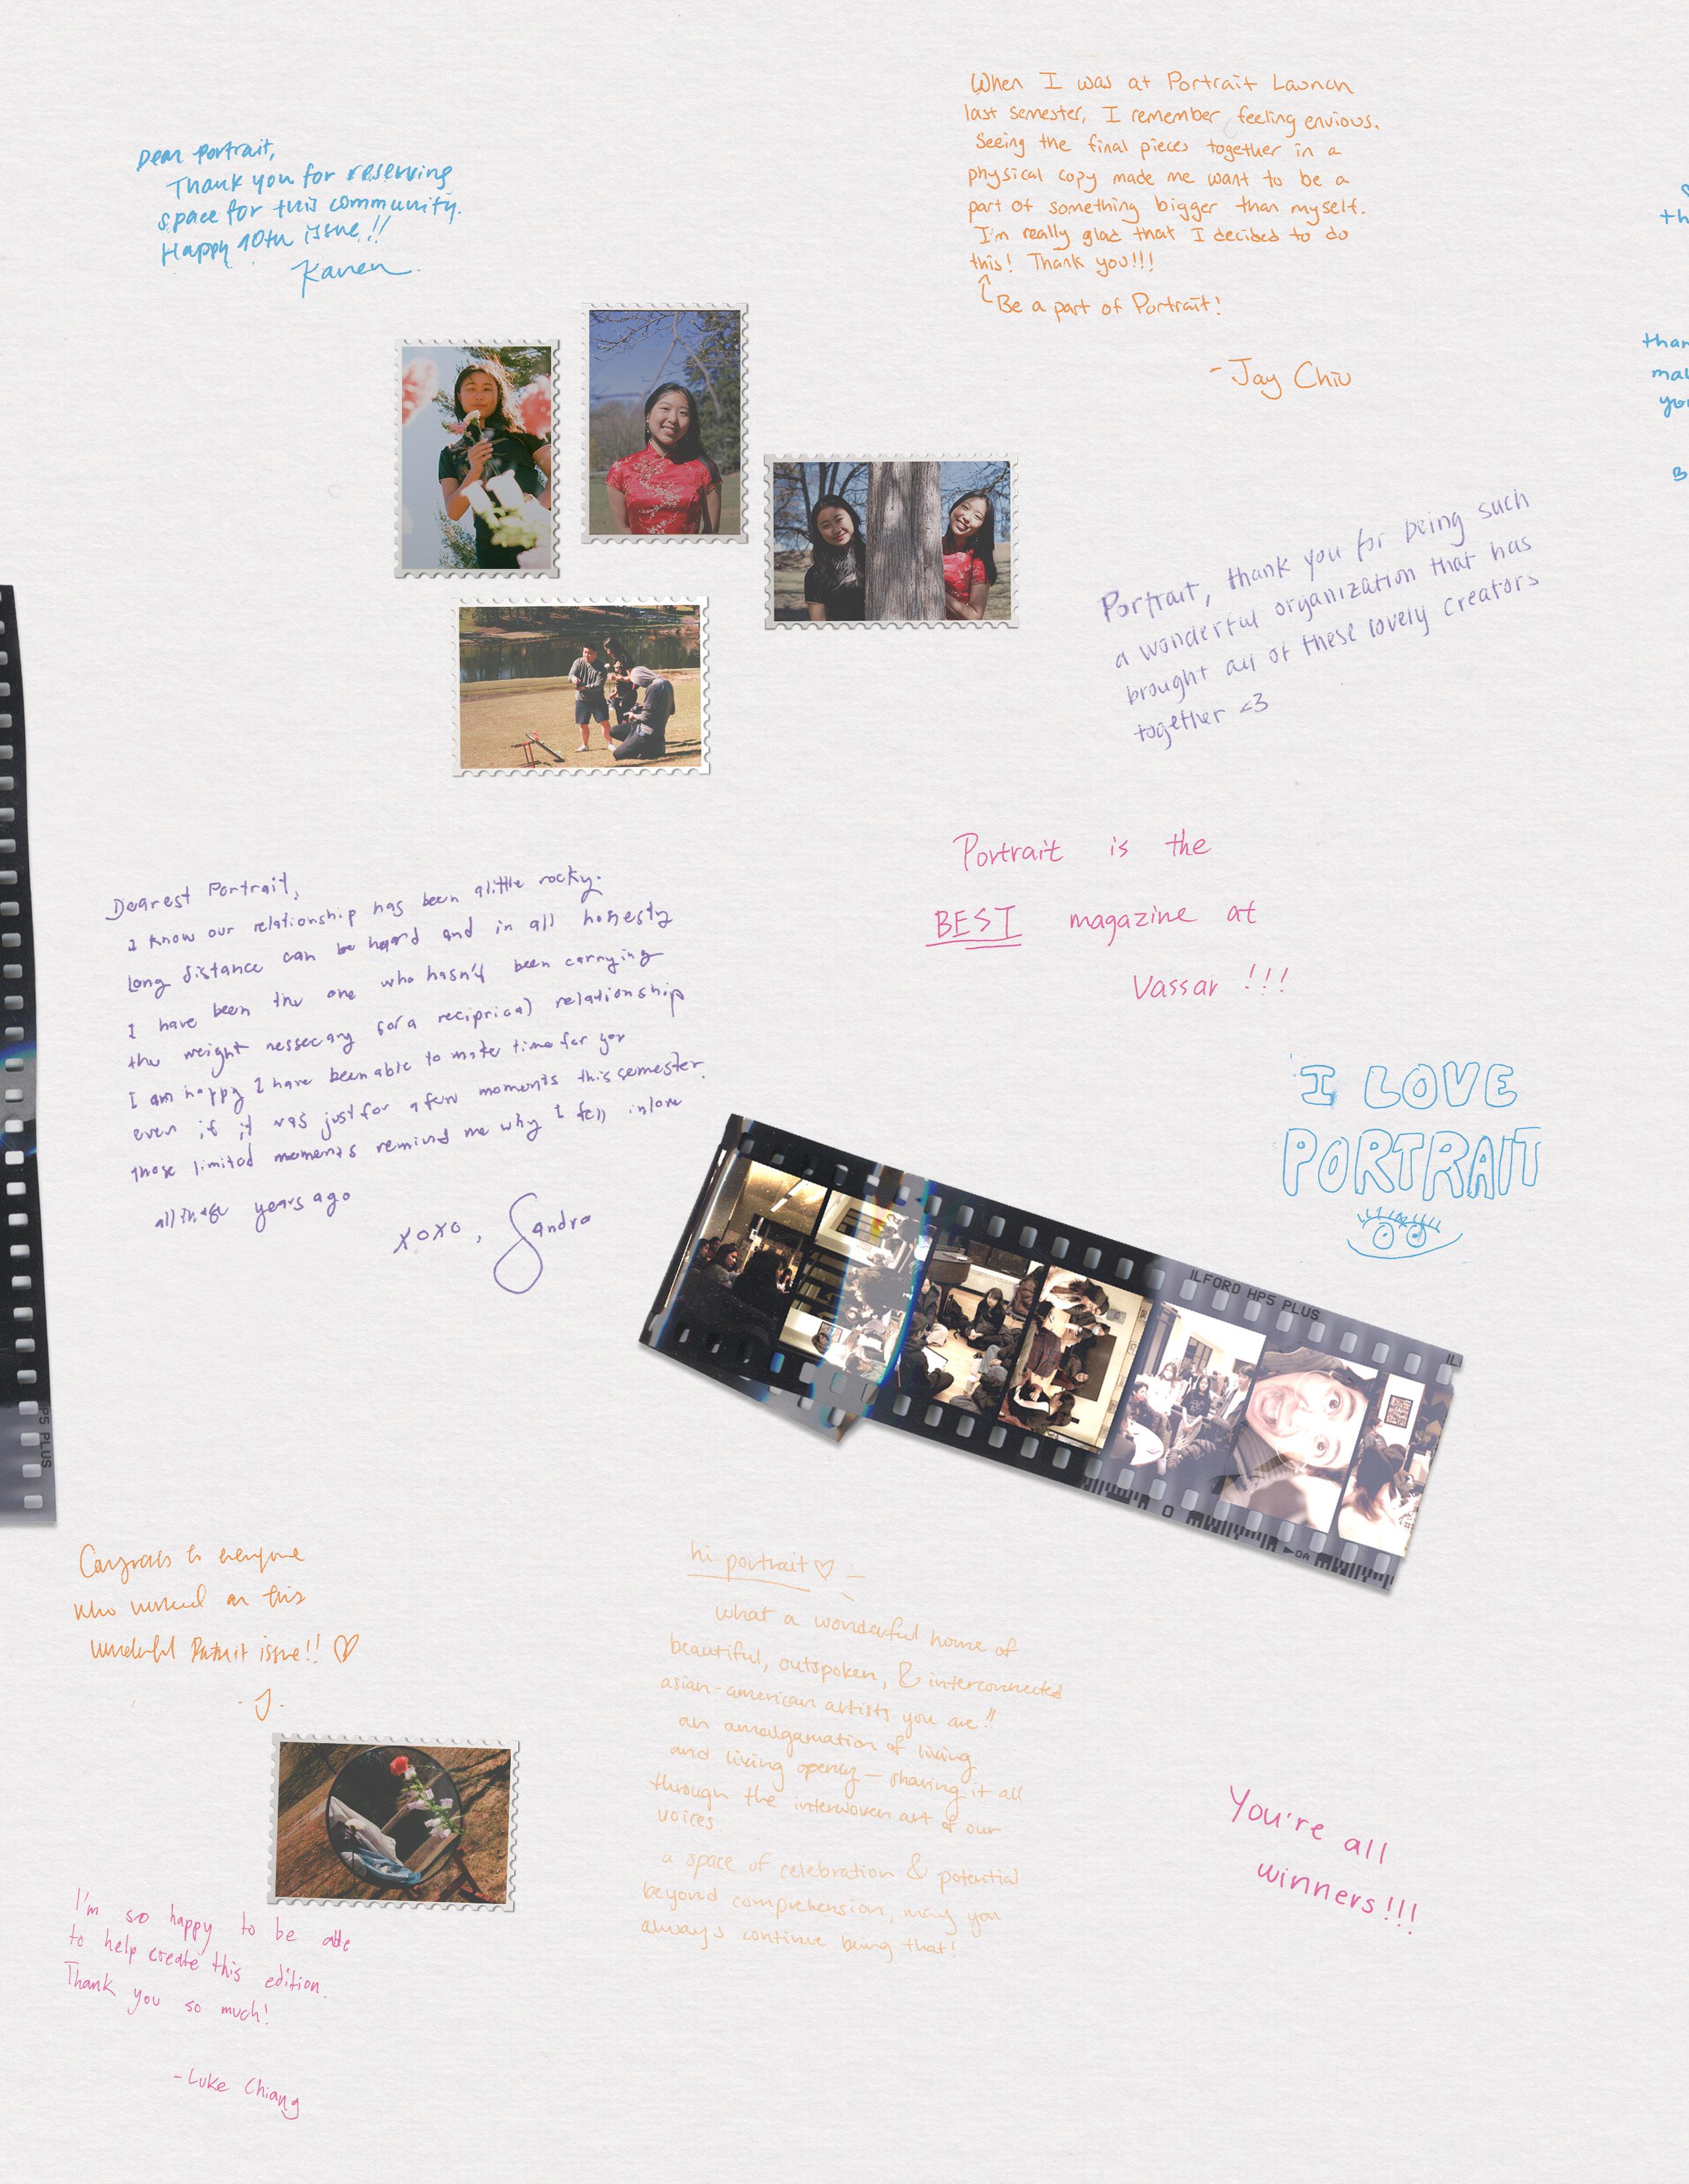 Dear Portrait,
Thank you for reserving
space for this community.
Happy 10th issue!!
Karen
When I was at Portrait Launch
last semester, I remember feeling envious.
Seeing the final pieces together in a
physical copy made me want to be a
part of something bigger than myself.
I'm really glad that I decided to do
this! Thank you!!!
Be a part of Portrait!
- Jay Chiu
Portrait, thank you for being such
a wonderful organization that has
brought all of these lovely creators
together <3
Portrait is the
BEST magazine at
Vassar !!!
Dearest Portrait,
I know our relationship has been a little rocky.
Long distance can be hard and in all honesty
I have been the one who hasn't been carrying
the weight nessecary for a reciprical relationship
I am happy I have been able to make time for you
even if it was just for a few moments this semester.
Those limited moments remind me why I fell in love
all these years ago
xoxo, Sandra
I LOVE
PORTRAIT
ILFORD HP5 PLUS
P5 PLUS
Congrats to everyone
who worked on this
wonderful Portrait issue!! ♡
- J.
hi portrait ♡ —
what a wonderful home of
beautiful, outspoken, & interconnected
asian-american artists you are!!
an amalgamation of living
and living openly — sharing it all
through the interwoven art of our
voices.
a space of celebration & potential
beyond comprehension, may you
always continue being that!
You're all
winners!!!
I'm so happy to be able
to help create this edition.
Thank you so much!
- Luke Chiang